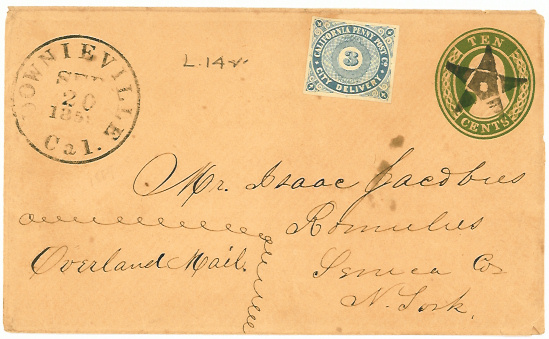 DOWNIEVILLE
SEP
20
Cal.
L.14
CALIFORNIA PENNY POST Co.
3
CITY DELIVERY
TEN
CENTS
Mr. Isaac Jacobus
Romulus
Overland Mail.
Seneca Co.
N. York.